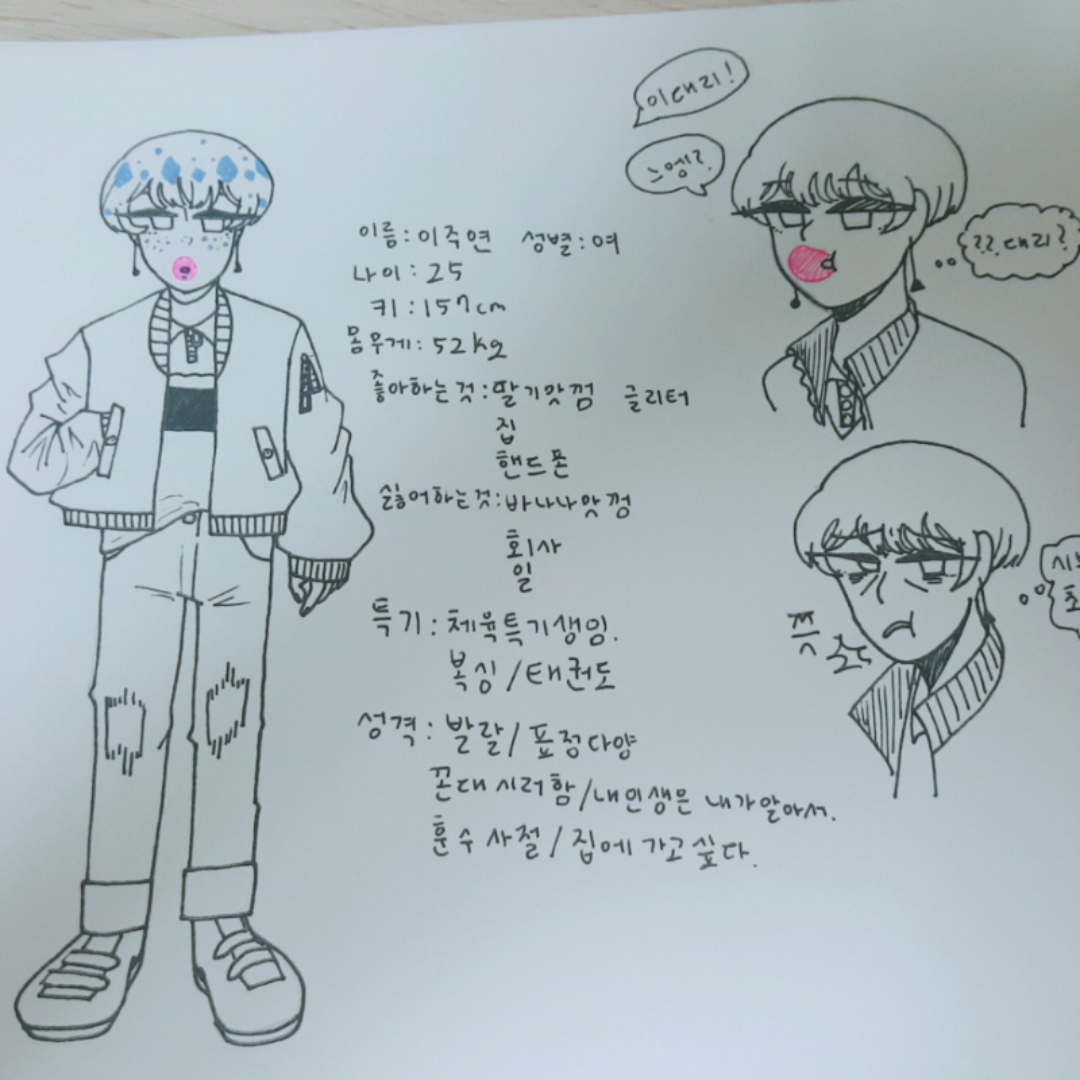 이대리!
스엥?
??.대리?
이름:이주연 성별:여
나이:25
키:157cm
몸무게:52kg
좋아하는것:딸기맛껌 글리터
집
핸드폰
싫어하는것:바나나맛껌
회사
일
특기:체육특기생임.
복싱/태권도
성격:발랄/표정다양
꼰대시러함/내인생은 내가알아서.
훈수사절/집에가고싶다.
쯧